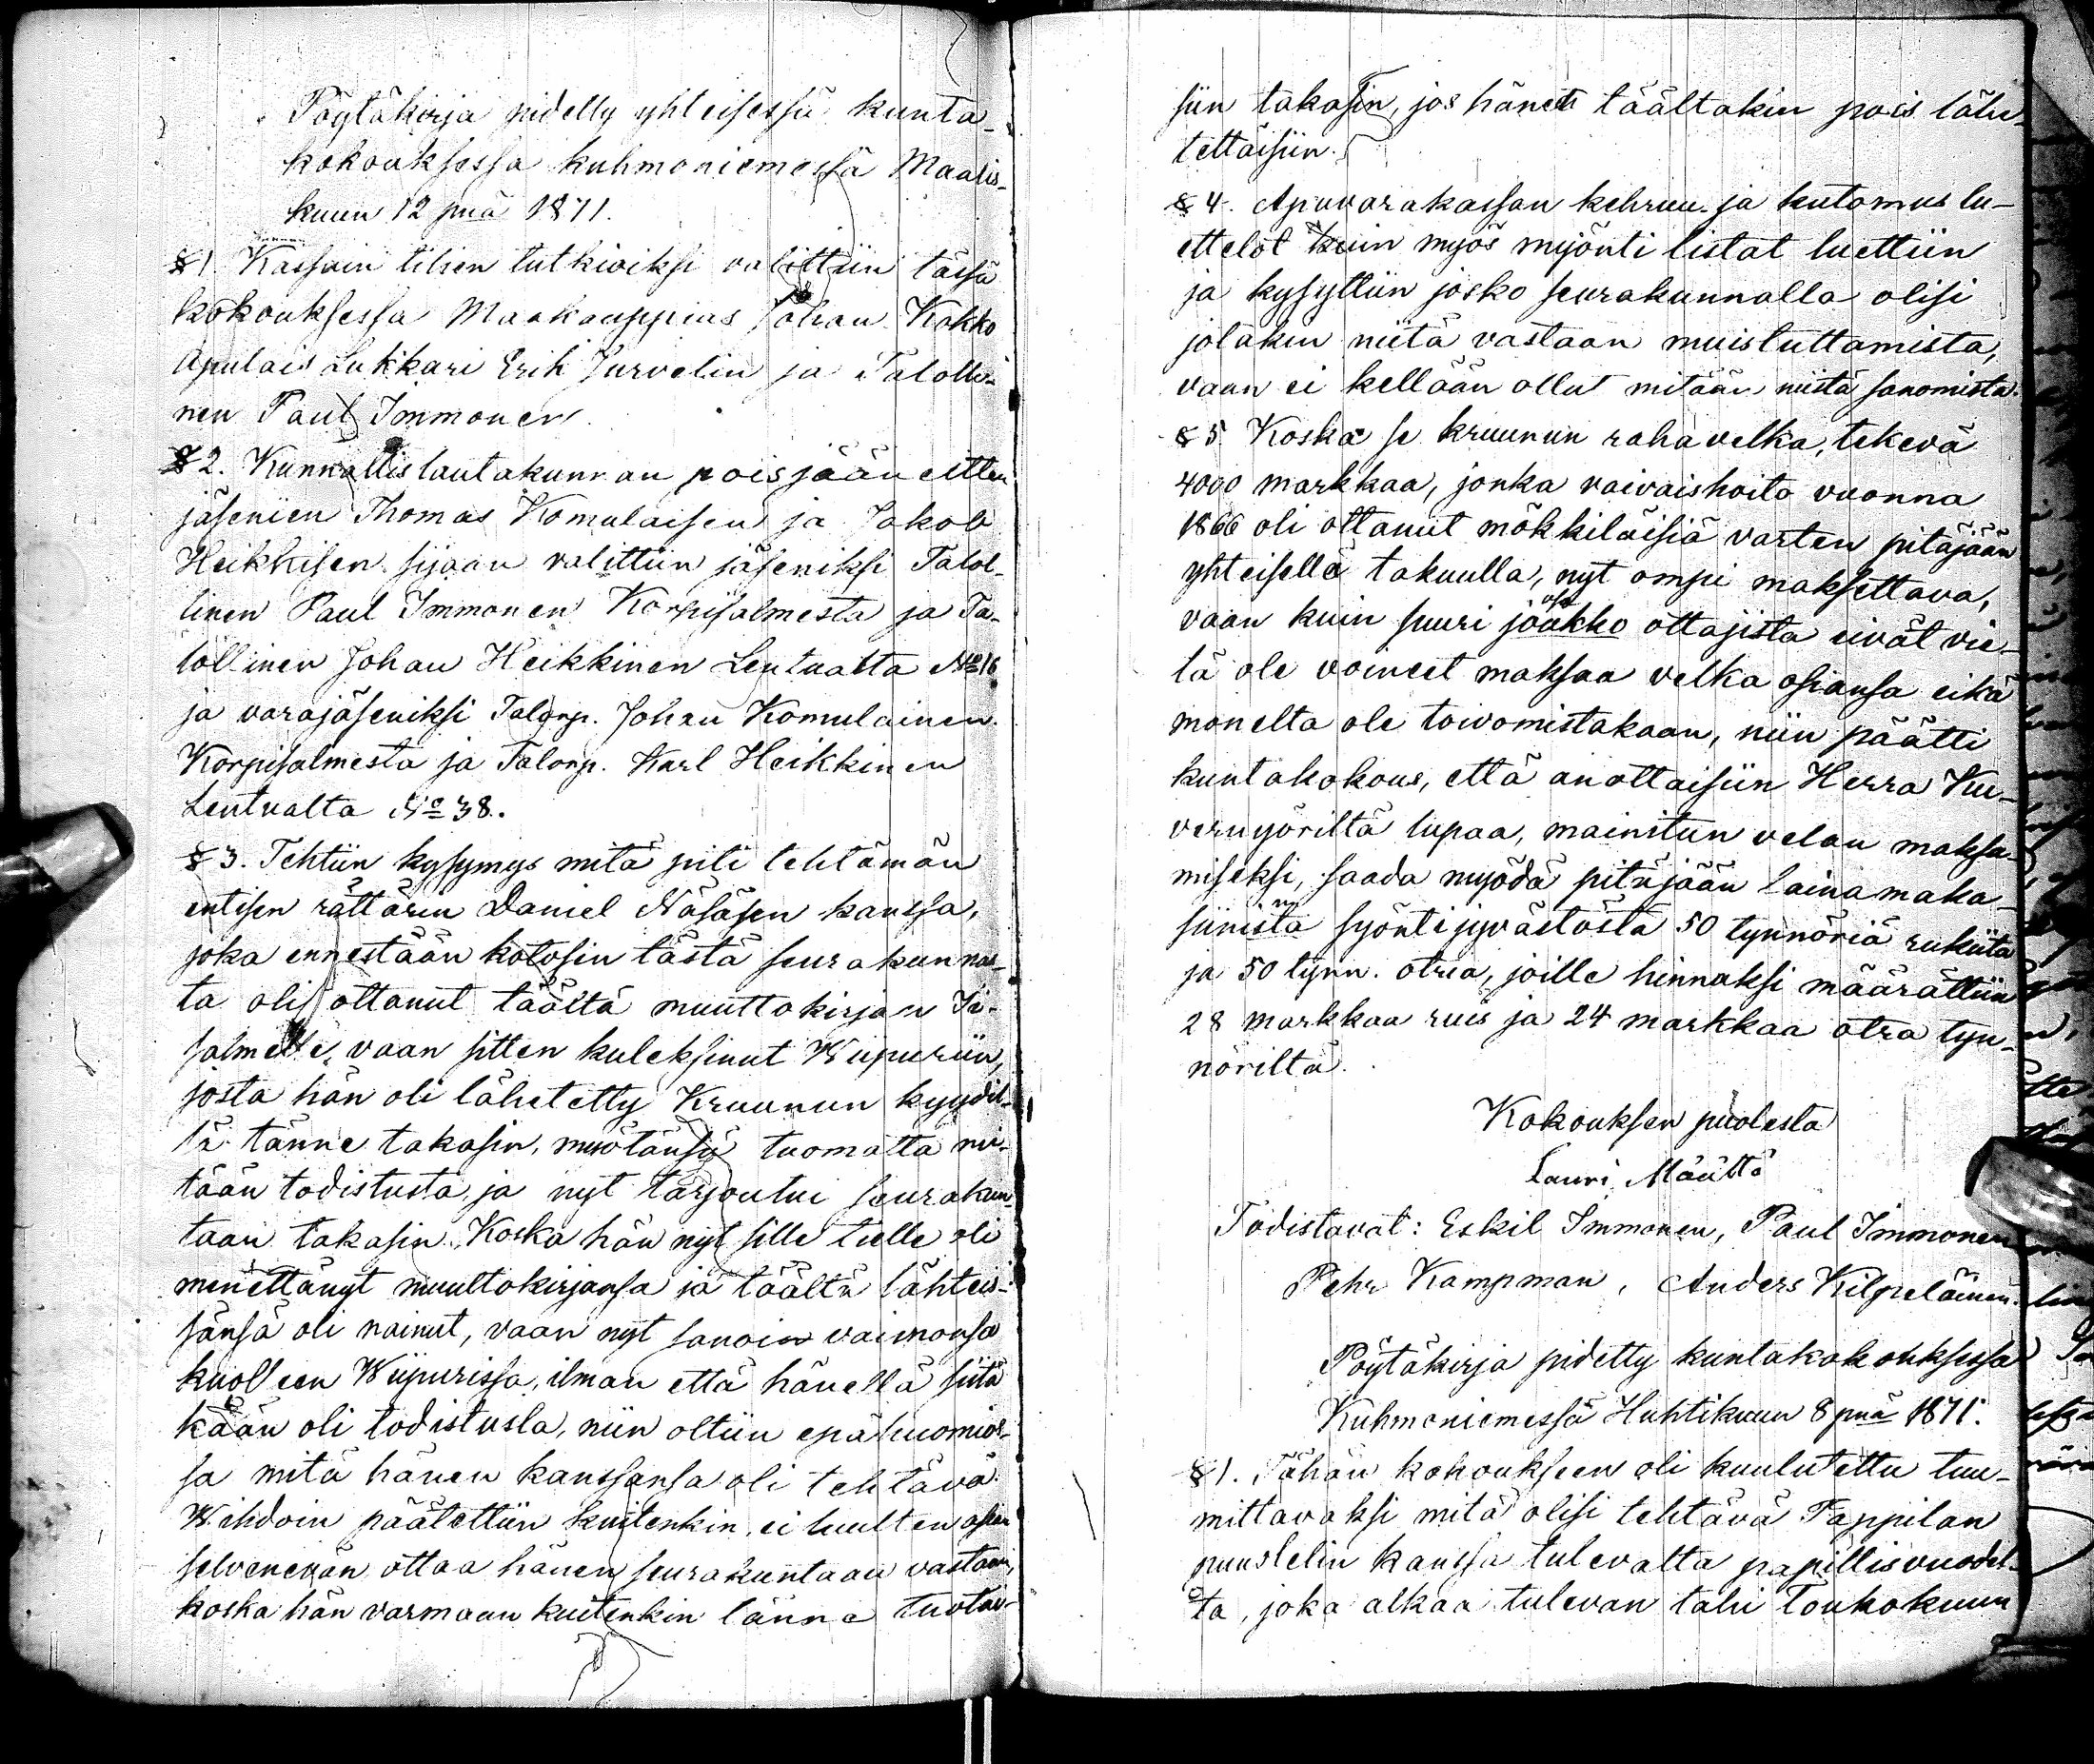 Pöytäkirja pidetty yhteisessä kunta-
kokouksessa kuhmoniemessä Maalis-
kuun 12 pnä 1871.
§ 1. Kassain tilien tutkioiksi valittiin tässä
kokouksessa Maakauppias Johan Kokko
Apulais Lukkari Erik Jurvelin ja Talolli-
nen Paul Immonen.
§ 2. Kunnallislautakunnan poisjääneitten
jäsenien Thomas Komulaisen ja Jakob
Heikkisen sijaan valittiin jäseniksi Talol-
linen Paul Immonen Korpisalmesta ja Ta-
lollinen Johan Heikkinen Lentualta No 16
ja varajäseniksi Talonp. Johan Komulainen
Korpisalmesta ja Talonp. Karl Heikkinen
Lentualta No 38.
§ 3. Tehtiin kysymys mitä piti tehtämän
entisen rättärin Daniel Näsäsen kanssa,
joka ennestään kotosin tästä seurakunnas-
ta oli ottanut täältä muuttokirjan Ii-
salmelle, vaan sitten kuleksinut Wiipuriin,
josta hän oli lähetetty Kruunun kyydil-
lä tänne takasin, muötänsä tuomatta mi-
tään todistusta, ja nyt tarjoutui seurakun-
taan takasin. Koska hän nyt sille tielle oli
menettänyt muuttokirjansa ja täältä lähteis-
sänsä oli nainut, vaan nyt sanoin vaimonsa
kuolleen Wiipurissa, ilman että hänellä siitä
kään oli todistusta, niin oltiin epäluomios-
sa mitä hänen kanssansa oli tehtävä.
Wihdoin päätettiin kuitenkin, ei luulten asian
selvenevän ottaa hänen seurakuntaan vastaan,
koska hän varmaan kuitenkin tänne tuotai-
siin takasin, jos hänet täältakin pois lähe-
tettäisiin.
§ 4. Apuvarakassan kehruu- ja kutomus lu-
ettelot kuin myös myönti listat luettiin
ja kysyttiin josko seurakunnalla olisi
jotakin niitä vastaan muistuttamista,
vaan ei kellään ollut mitään niistä sanomista.
§ 5. Koska se kruunun raha velka, tekevä
4000 markkaa, jonka vaivaishoito vuonna
1866 oli ottanut mökkiläisiä varten pitäjään
yhteisellä takuulla, nyt ompi maksettava,
vaan kuin suuri joukko osa ottajista eivät vie-
lä ole voineet maksaa velka osiansa eikä
monelta ole toivomistakaan, niin päätti
kuntakokous, että anottaisiin Herra Ku-
vernyöriltä lupaa, mainitun velan maksa-
miseksi, saada myödä pitäjään lainamaka-
siinista syöntijyvästöstä 50 tynnöriä rukiita
ja 50 tynn. otria, joille hinnaksi määrättiin
28 markkaa ruis ja 24 markkaa otra tyn-
nöriltä.
Kokouksen puolesta
Lauri Määttä
Todistavat: Eskil Immonen, Paul Immonen
Pehr Kampman, Anders Kilpeläinen.
Pöytäkirja pidetty kuntakokouksessa
Kuhmoniemessä Huhtikuun 8 pnä 1871.
§ 1. Tähän kokoukseen oli kuulutettu tuu-
mittavaksi mitä olisi tehtävä Pappilan
puustelin kanssa tulevalta papillisvuodel-
ta, joka alkaa tulevan tahi Toukokuun